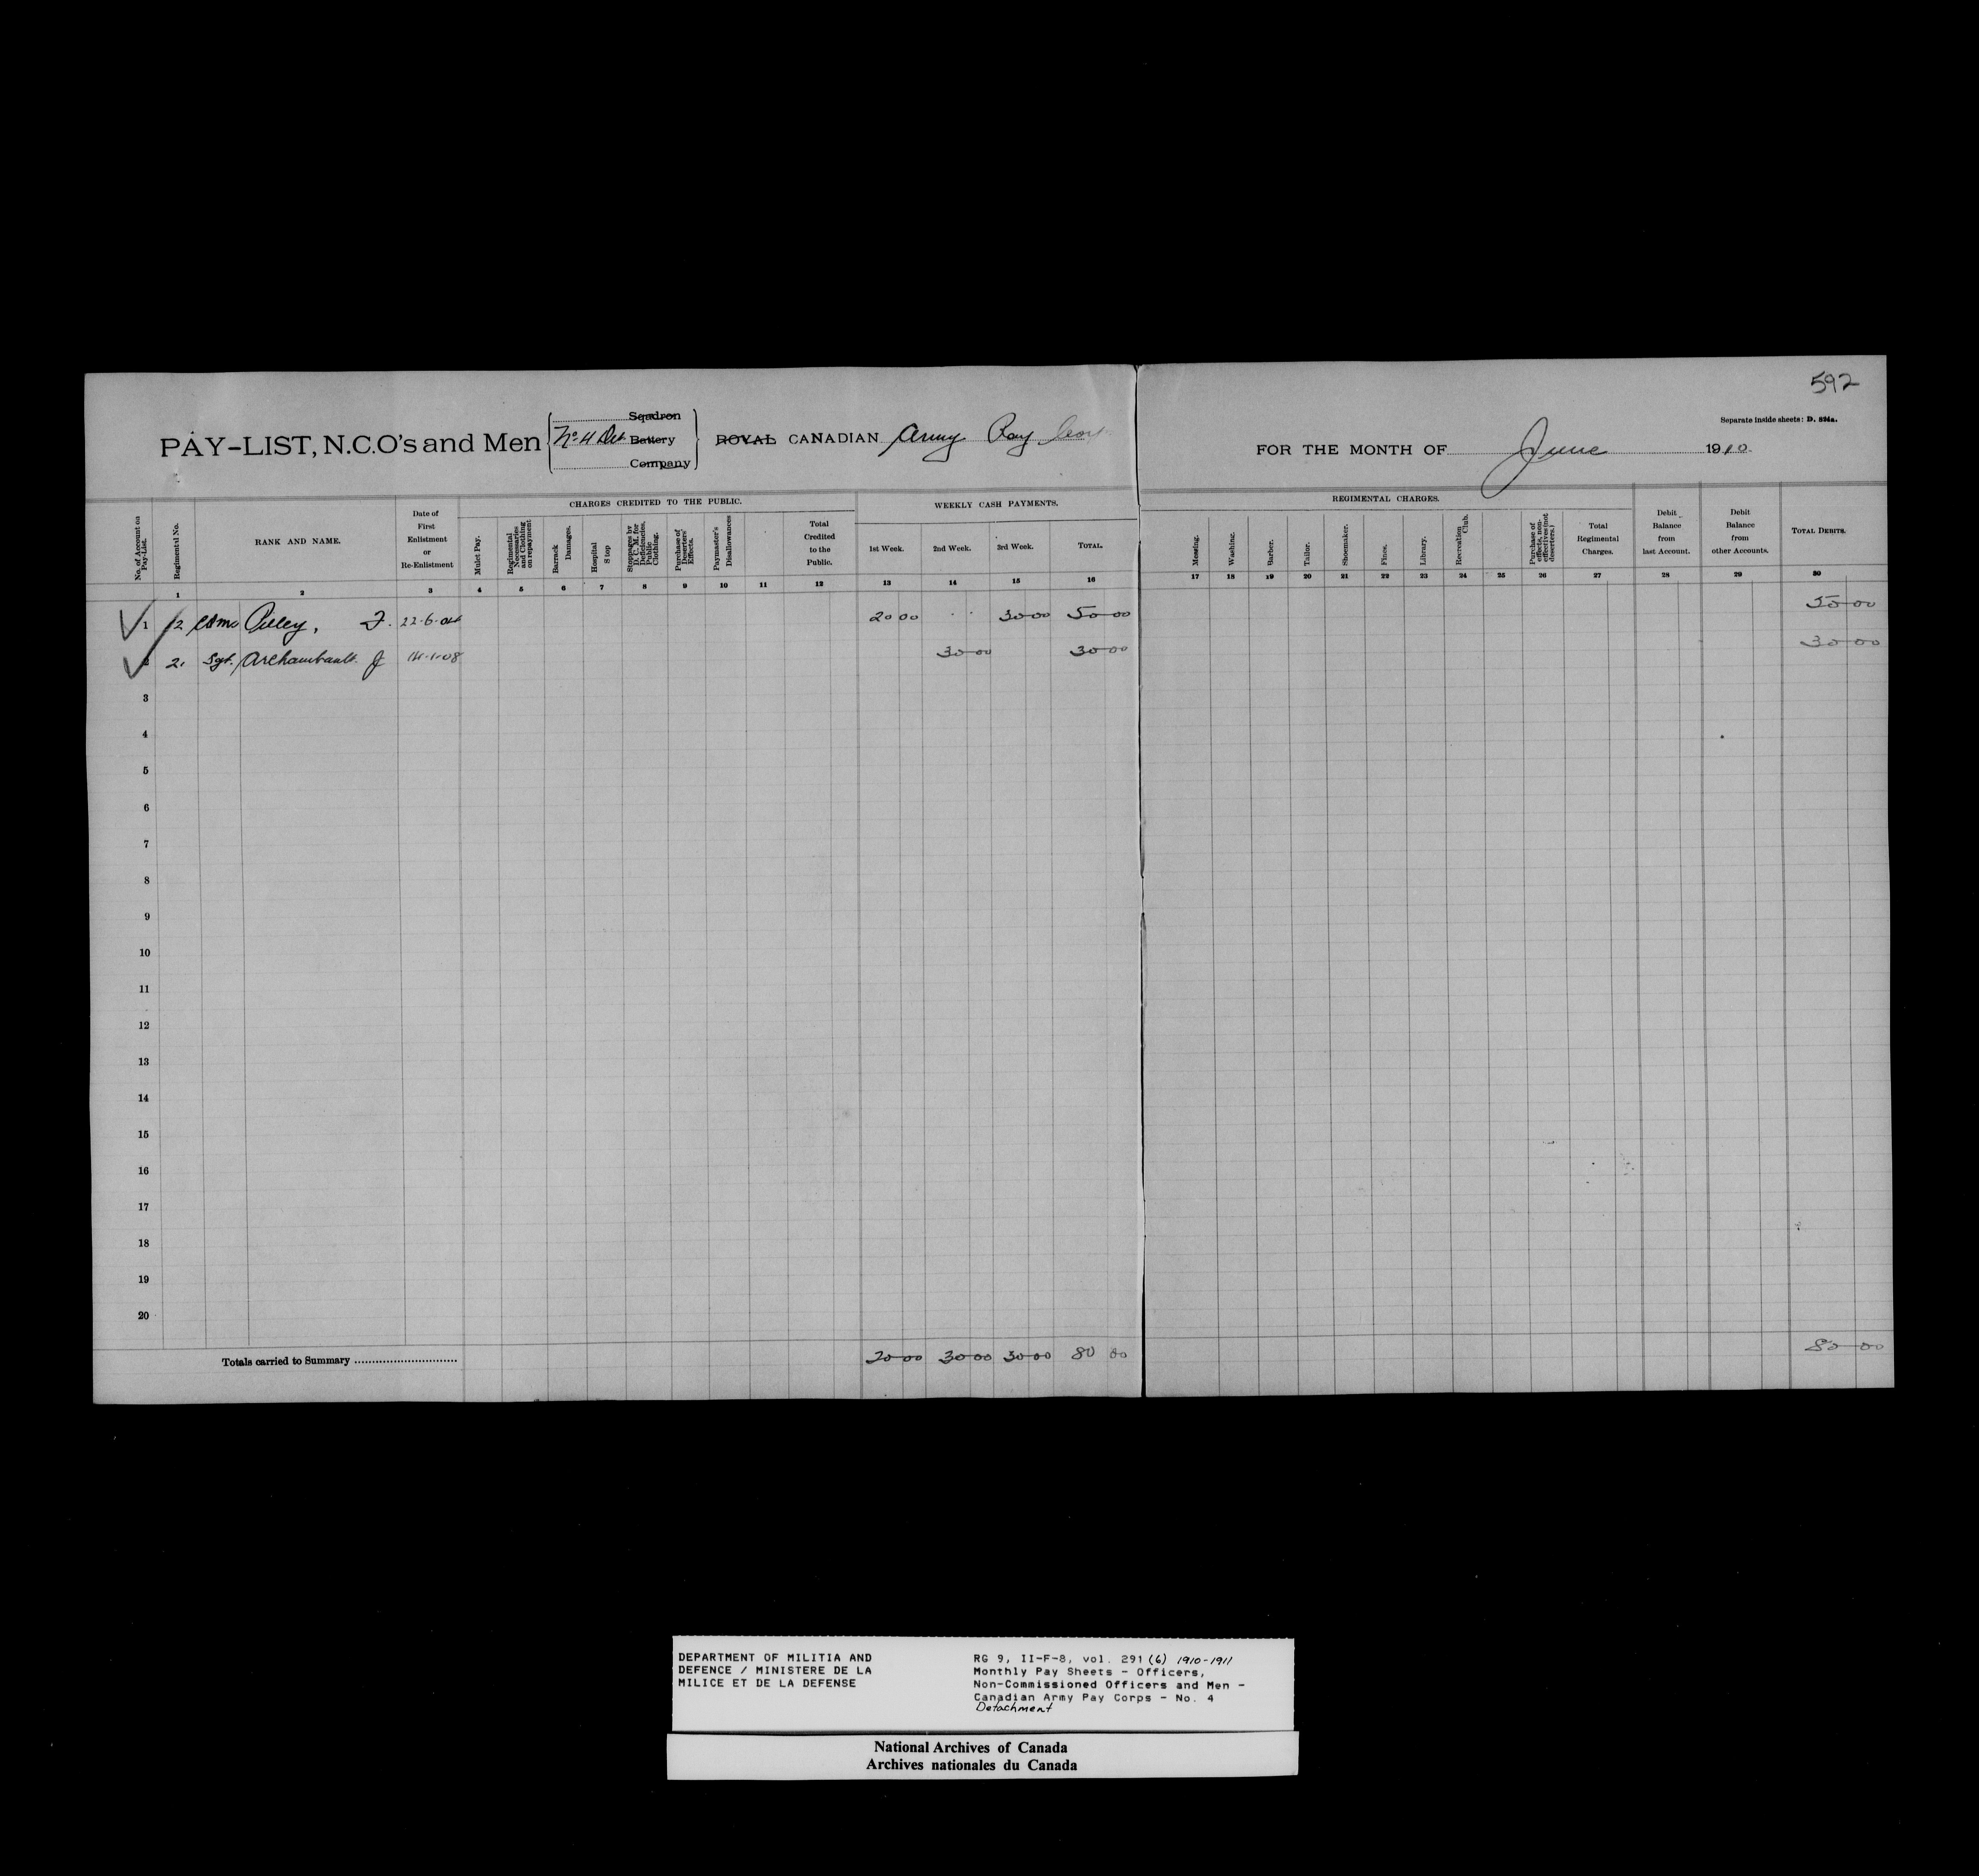 592
Separate inside sheets: D. 824a.
PAY-LIST, N.C.O's and Men No. 4 Det. Squadron Battery Company ROYAL CANADIAN Army Pay Corps FOR THE MONTH OF June 1910
CHARGES CREDITED TO THE PUBLIC. WEEKLY CASH PAYMENTS. REGIMENTAL CHARGES.
No. of Account on Pay-List. Regimental No. RANK AND NAME. Date of First Enlistment or Re-Enlistment Mulct Pay. Regimental Necessaries and Clothing on repayment Barrack Damages. Hospital Stop Stoppages by D. C. M. for Deficiencies, Public Clothing. Purchase of Deserters' Effects. Paymaster's Disallowances Total Credited to the Public. 1st Week. 2nd Week. 3rd Week. TOTAL. Messing. Washing. Barber. Tailor. Shoemaker. Fines. Library. Recreation Club. Purchase of effects, non-effectives (not deserters.) Total Regimental Charges. Debit Balance from last Account. Debit Balance from other Accounts. TOTAL DEBITS.
1 2 3 4 5 6 7 8 9 10 11 12 13 14 15 16 17 18 19 20 21 22 23 24 25 26 27 28 29 30
1 12 F. 22-6-04 20 00 30 00 50 00 50 00
2 2. Sgt. Archambault J 14-1-08 30 00 30 00 30 00
3
4
5
6
7
8
9
10
11
12
13
14
15
16
17
18
19
20
Totals carried to Summary 20 00 30 00 30 00 80 00 80 00
DEPARTMENT OF MILITIA AND
DEFENCE / MINISTERE DE LA
MILICE ET DE LA DEFENSE
RG 9, II-F-8, vol. 291 (6) 1910-1911
Monthly Pay Sheets - Officers,
Non-Commissioned Officers and Men -
Canadian Army Pay Corps - No. 4
Detachment
National Archives of Canada
Archives nationales du Canada